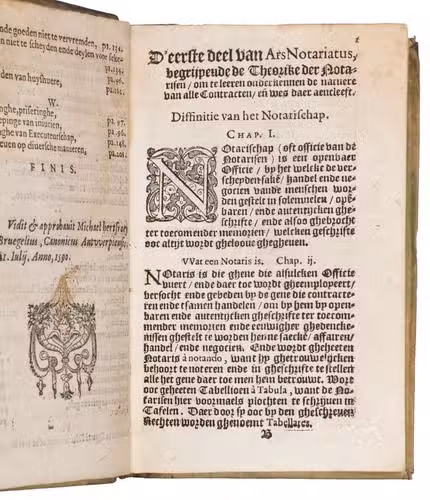 nde goeden niet te vervremden, pa.134.
n niet te scheyden ende deylen voor sche-
pa.
den van huyshuere, pa.
W.
nghe, priseringhe, pa.96.
epinge van injurien, pa.96.
nghe van Executeurschap, pa.148.
euren op diuersche manieren, pa.201.
FINIS.
Vidit & approbavit Michael
Bruegelius, Canonicus Antverpiensis,
21. Iulij, Anno, 1590.
1
D'eerste deel van Ars Notariatus,
begrijpende de Theorike der Nota-
risen / om te leeren onderkennen de natuere
van alle Contracten / en wes daer aencleeft.
Diffinitie van het Notarischap.
CHAP. I.
NOtarischap (oft officie van de
Notarisen) is een openbaer
Officie / by het welcke de ver-
scheyden sakē / handel ende ne-
gocien vande menschen wor-
den gestelt in solemnelen / opē-
baren / ende autentijcken ghe-
schrifte / ende alsoo ghebrocht
ter toecomender memorien / welcken geschrifte
ooc altijt wordt gheloove ghegheuen.
VVat een Notaris is. Chap. ij.
NOtaris is die ghene die alsulcken Officie
vuert / ende daer toe wordt gheemployeert /
versocht ende gebeden by de gene die contracte-
ren ende tsamen handelen / om by hem by open-
baren ende autentijcken gheschrifte ter toecom-
mender memorien ende eeuwigher ghedencke-
nissen ghestelt te worden henne saecke / affairen /
handel / ende negocien. Ende wordt gheheeten
Notaris à notando, want hy ghetrouwelijcken
behoort te noteren ende in gheschrifte te stellen
alle het gene daer toe men hem betrouwt. Wort
ooc geheeten Tabellioen à Tabula, want de No-
tarisen hier voormaels plochten te schrijuen in
Tafelen. Daer door sy ooc by den gheschreuen
Rechten worden ghenoemt Tabellares.
B